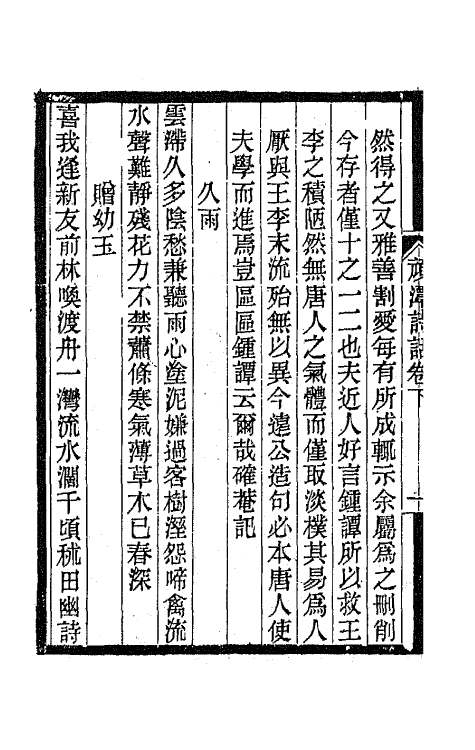 然得之又雅善割愛每有所成輒示余屬爲之刪削
今存者僅十之一二也夫近人好言鍾譚所以救王
李之積陋然無唐人之氣體而僅取淡樸其易爲人
厭與王李末流殆無以異今遠公造句必本唐人使
夫學而進焉豈區區鍾譚云爾哉確菴記
久雨
雲滯久多陰愁兼聽雨心塗泥嫌過客樹溼怨啼禽流
水聲難靜殘花力不禁蕭條寒氣薄草木已春深
贈幼玉
喜我逢新友前林喚渡舟一灣流水濶千頃秫田幽詩
詩話卷下
十